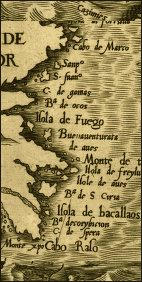 DE
OR
Cabo de Marco
C. de gamas
Bª. de ocos
Isola de Fuego
Buenaventurata
de aues
Monte de t
Isola de freylu
Isole de aues
Bª. de S. Ciria
Isola de bacallaos
C. de Spera
Cabo Raso